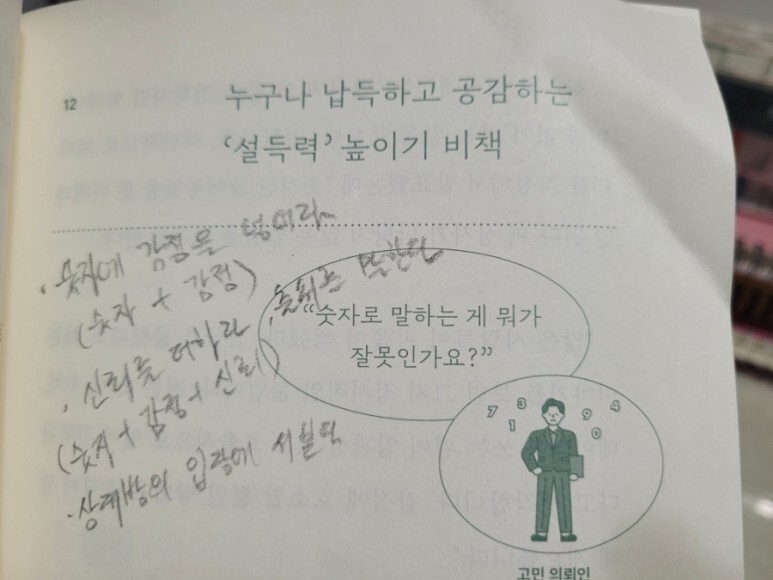 12
누구나 납득하고 공감하는
‘설득력’ 높이기 비책
· 숫자에 감정을 더해라
(숫자 + 감정)
· 신뢰를 더하라,
(숫자 + 감정 + 신뢰)
· 상대방의 입장에
“숫자로 말하는 게 뭐가
잘못인가요?”
7 3 1 9 4 0
고민 의뢰인